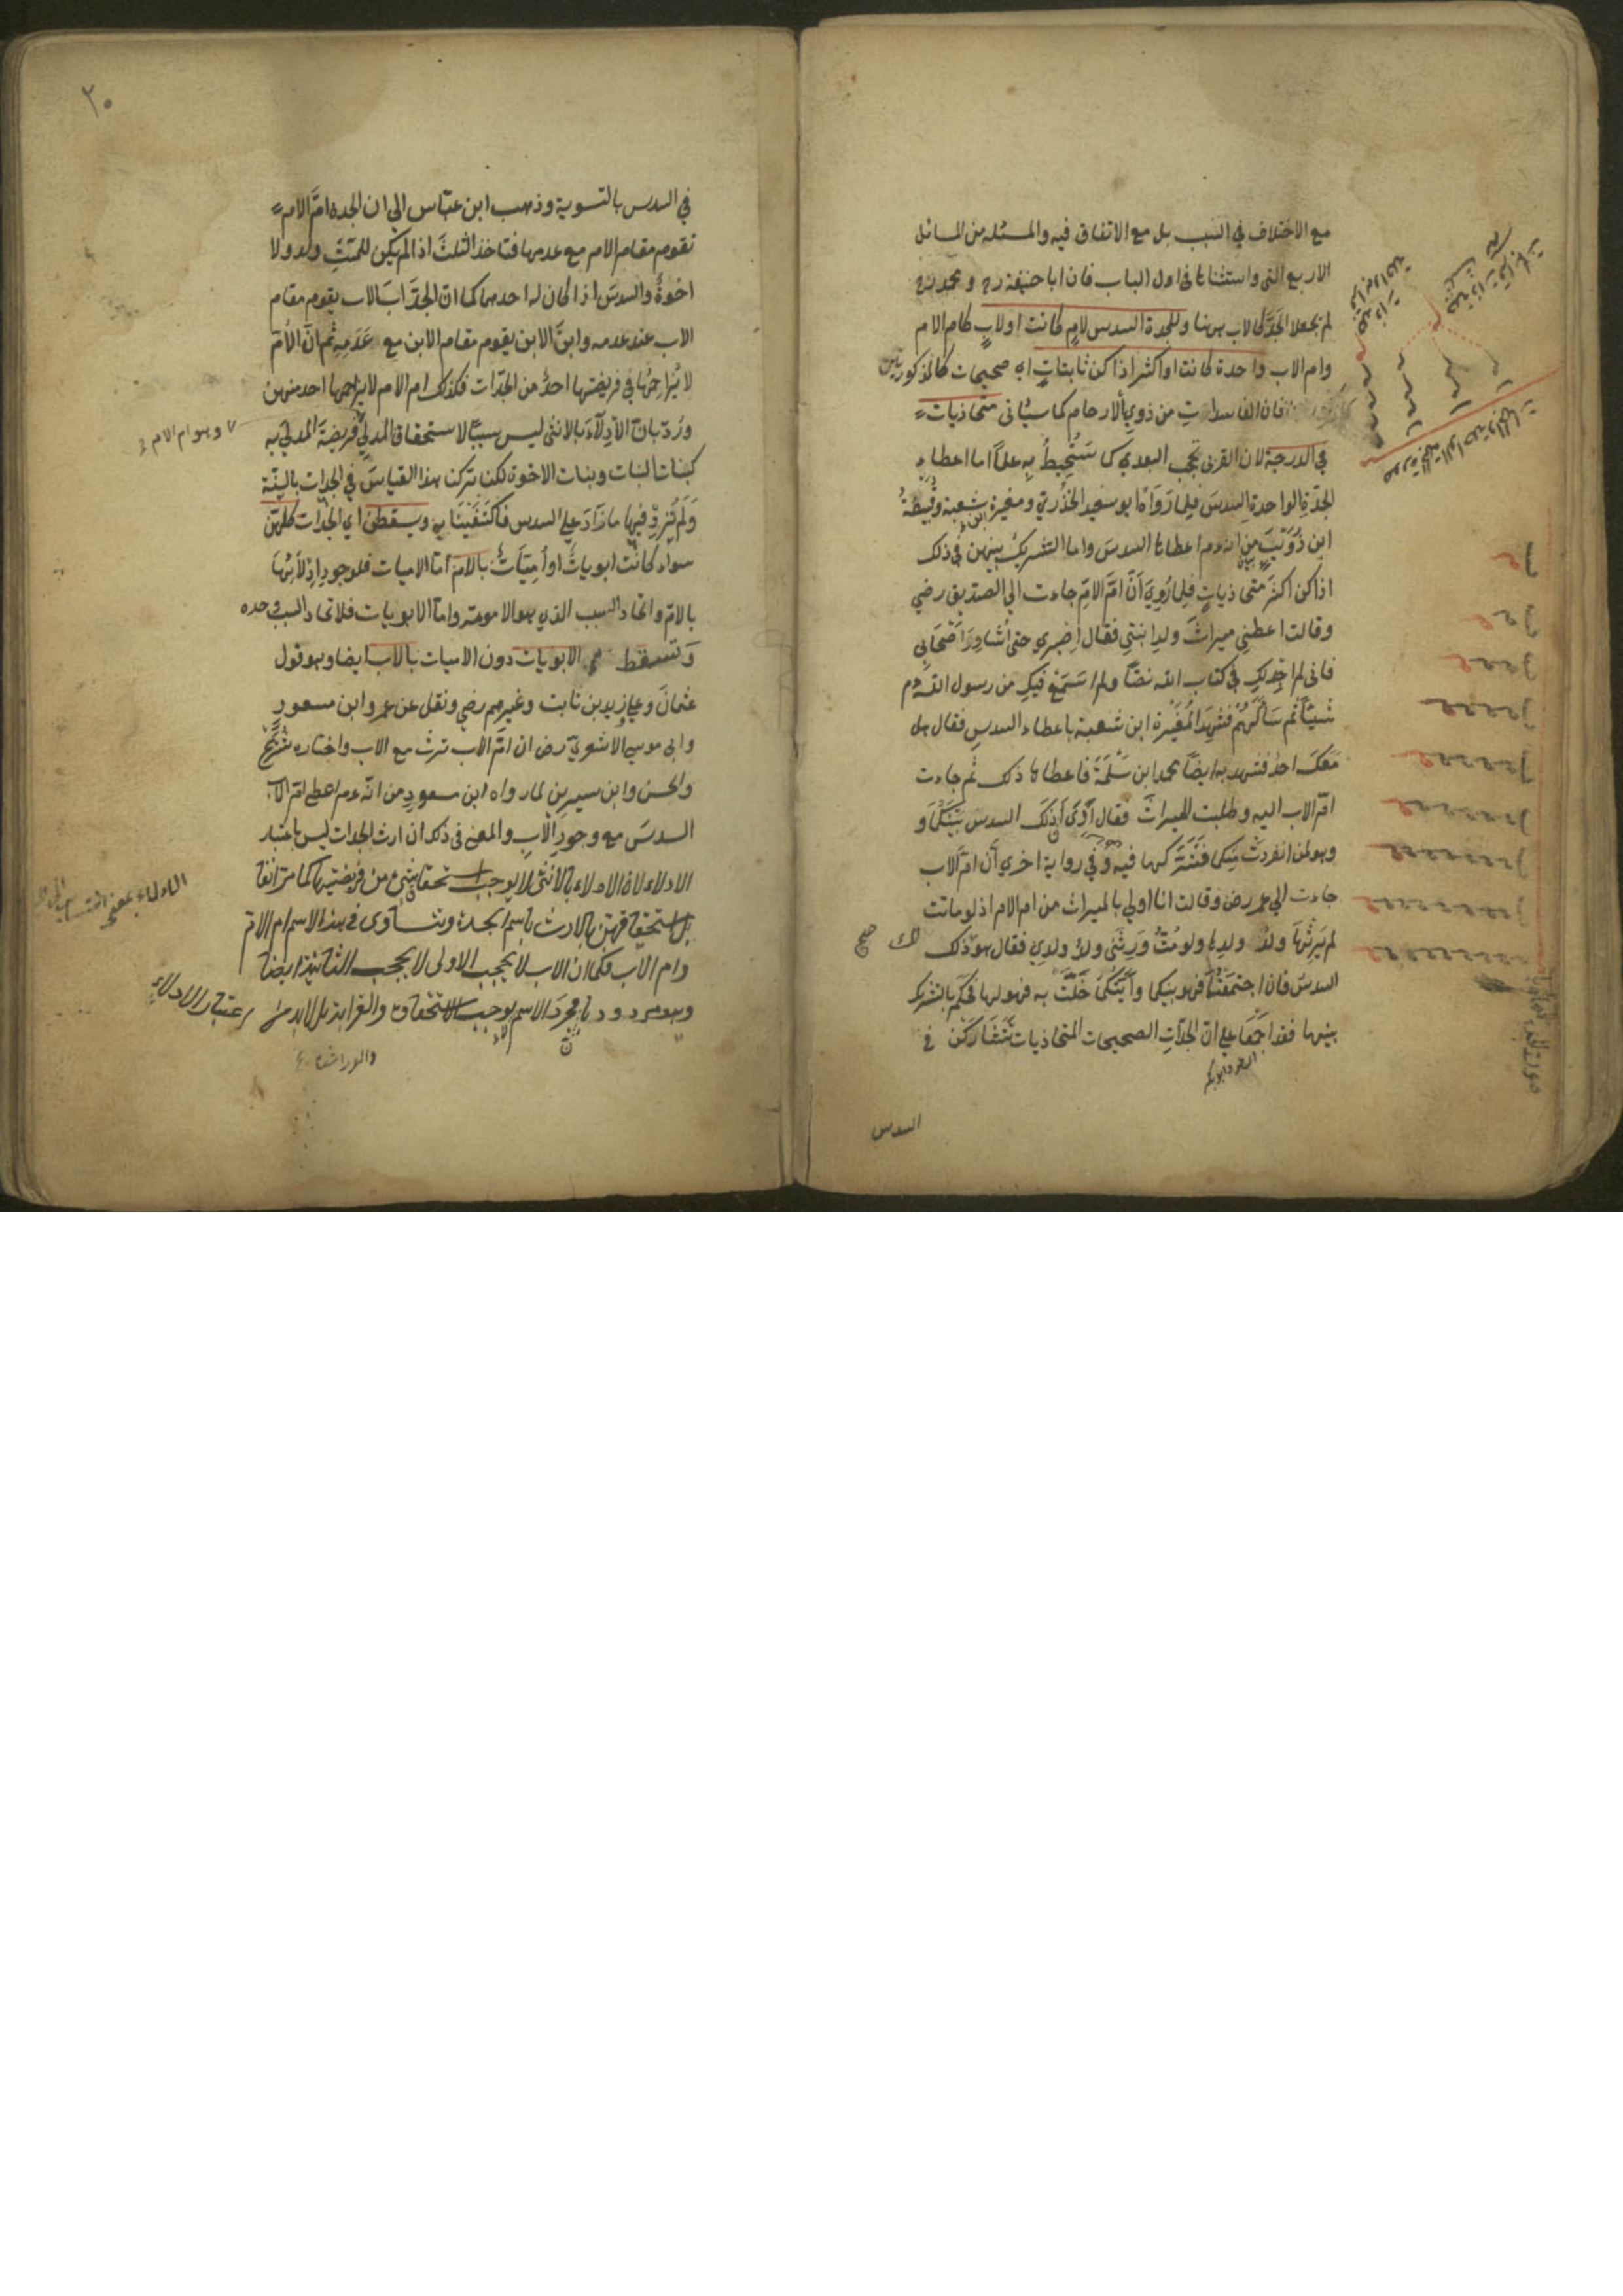 مع الاختلاف في السبب بل مع الاتفاق فيه والمسئلة من المسائل
الاربع التي استثناها في اول الباب فان ابا حنيفة رح ومحمد رح
لم يجعلا الجَدَّ كالاب ههنا وللجدة السدس لامٍ كانت او لابٍ كام الام
وام الاب واحدة كانت او اكثر اذا كن ثابتاتٍ اى صحيحات كالمذكورتين
فان الفاسداتِ من ذوي الارحام كما سيأتى متحاذيات
في الدرجة لان القربى تحجب البعدي كما سَتُحيطُ بِهِ علماً اما اعطاء
الجدّةِ الواحدةِ السدسَ فلِما رَوَاهُ ابو سعيد الخُدْرِيّ ومغيرة بن شعبة وقَبِيصَةُ
ابن ذُوَيْبٍ من انه عم اعطاها السدسَ واما التشريكُ بينهن في ذلك
اذا كن اكثرَ متحاذياتٍ فلِما رُوِيَ أنّ امَّ الامِّ جاءت الي الصديق رضي
وقالت اعطني ميراثَ ولدِ ابنتي فقال اصْبِرِي حتى أُشَاوِرَ أَصْحَابِي
فانى لم اجد لكِ في كتاب الله نصّاً ولم اَسْمَعْ فيكِ من رسول الله عم
شيئاً ثم سَأَلَهُمْ فشَهِدَ المُغِيْرَة ابن شعبة باعطاء السدسِ فقال هل
مَعَكَ احدٌ فشهد به ايضاً محمد ابن سَلَمَةَ فاعطاها ذلك ثم جاءت
امّ الاب اليه وطلبت الميراثَ فقال أَرَى أنّ ذلكَ السدس بَيْنَكُمَا وَ
وهو لمن انفردتْ منكما فَشَرَكَهما فيه وفي رواية اخرى أن امّ الاب
جاءت الي عمر رضى وقالت انا اولي بالميراث من ام الام اذ لو ماتت
لم يَرِثْهَا ولدُ ولدِها ولو مُتُّ وَرِثَنِى ولدُ ولدِي فقال هو ذلك
السدسُ فان اجتَمَعْتُمَا فهو بينكما وأَيَّتُكُمَا خَلَتْ به فهو لها فحكم بالتشريك
بينهما فقد اجمَعَا علي انّ الجدّاتِ الصحيحات المتحاذيات يَتَشَارَكْنَ في
السدس
٢٠
في السدس بالتسوية وذهب ابن عبّاس الي ان الجدة امَّ الام
تقوم مقام الام مع عدمها فتاخذ الثلثَ اذا لم يكن للميّتِ ولدٌ ولا
اخوةٌ والسدسَ اذا كان له احدهما كما انّ الجدَّ ابَ الاب يقوم مقام
الاب عند عدمه وابنَ الابن يقوم مقام الابن مع عَدَمِهِ ثم انّ الأمّ
لا يُزاحِمُها في فريضتها احدٌ من الجدّات فكذلك ام الام لا يزاحمها احد منهن
ورُدّ بانّ الاِدْلاَءَ بالانثى ليس سبباً لاستحقاق المدلي فريضةَ المدلي به
وهو ام الام
كبنات البنات وبنات الاخوة لكن تركنا هذا القياسَ في الجدات بالسنّة
وَلَم يُزَدْ فيها ما زَادَ علي السدس فاكتَفَيْنَا به ويسقطن اي الجدّات كلهنّ
سواء كانت ابوياتٍ او اُمِّيّاتٍ بالام اما الاميات فلوجودِ اِدْلاَئِهَا
بالامّ واتحاد السبب الذي هو الامومة واما الابويات فلاتحاد السبب وحده
وَتسقط الابويات دون الاميات بالاب ايضا وهو قول
عثمانَ وعلي وزيد بن ثابت وغيرهم رضي ونقل عن عمر وابن مسعودٍ
وابى موسي الاشعريّ رضى ان امّ الاب ترث مع الاب واختاره شُرَيْحٌ
والحسن وابن سيرين لما رواه ابن مسعودٍ من انّه عم اعطي امّ الاب
السدسَ مع وجودِ الأبِ والمعنى في ذلك ان ارث الجدات ليس باعتبار
الادلاء لان الادلاء بالانثى لا يوجب استحقاق شئ من فريضتها كما مرّ آنفا
بل استحقاقهن بالارث باسم الجدة وتساوى في هذا الاسم ام الام
وام الاب فكما ان الاب لا يحجب الاولى لا يحجب الثانية ايضا
وهو مردود بان مجرد الاسم لا يوجب الاستحقاق والقرابة بل لا بد من اعتبار الادلاء
والوراثة